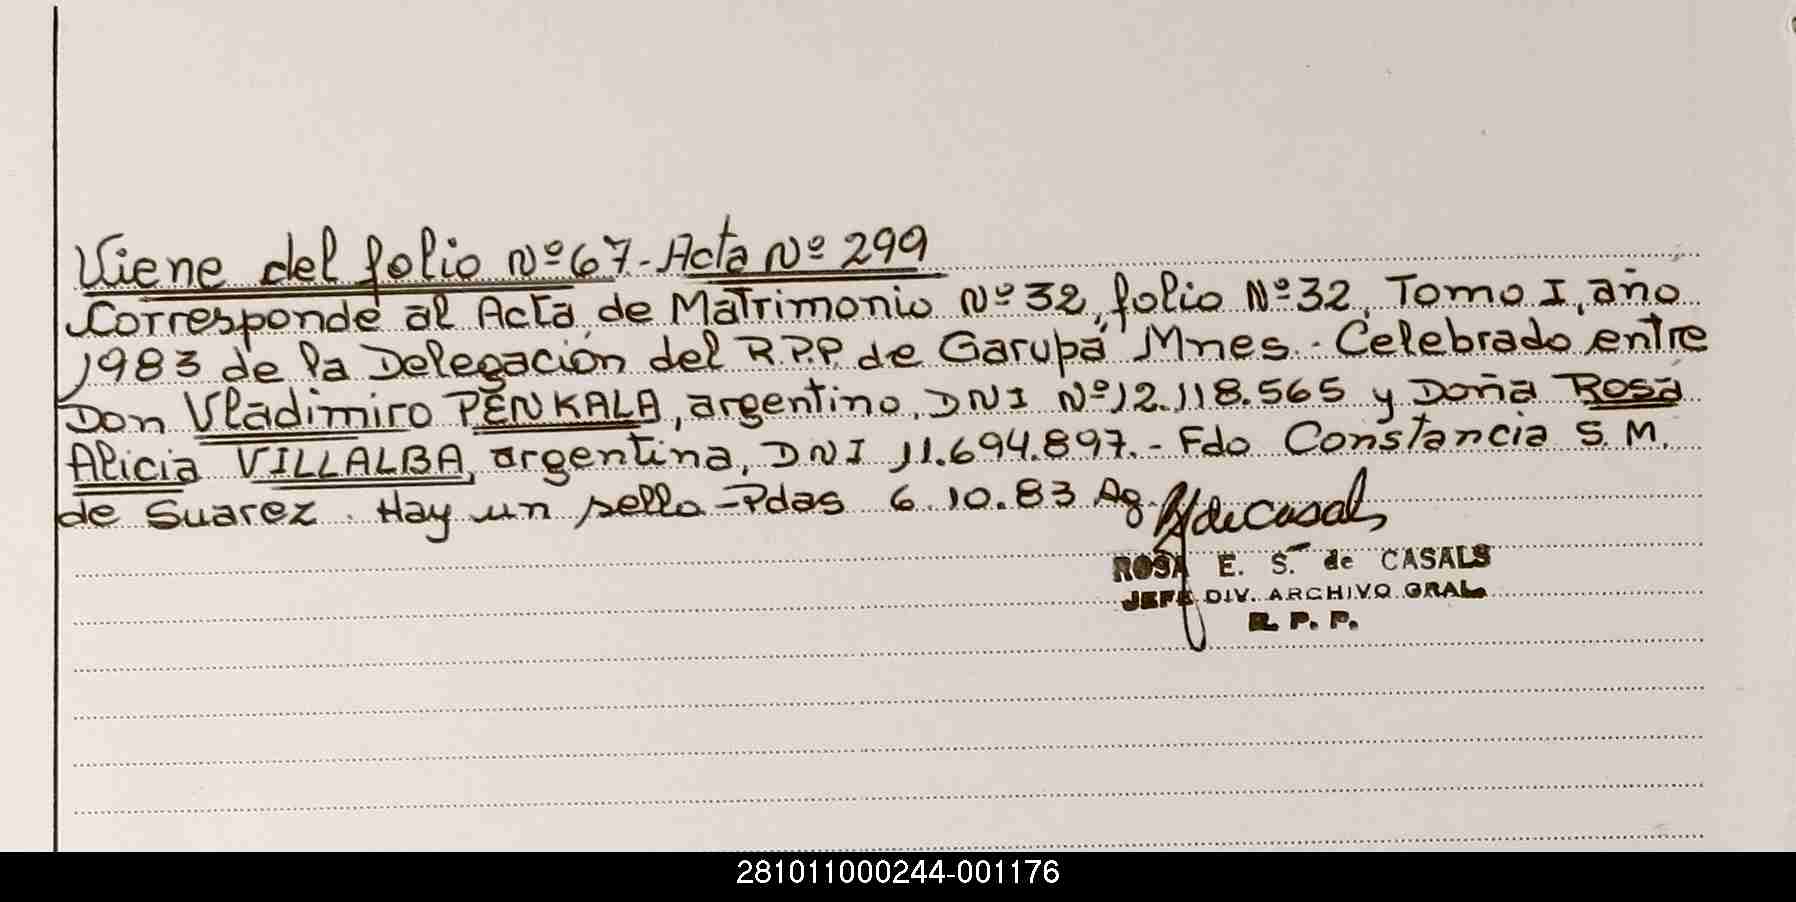 Viene del folio Nº 67-Acta Nº 299
Corresponde al Acta de Matrimonio Nº 32, folio Nº 32, Tomo I, año
1983 de la Delegación del R.P.P. de Garupá Mnes. Celebrado entre
Don Vladimiro PENKALA, argentino, DNI Nº 12.118.565 y Doña Rosa
Alicia VILLALBA, argentina, DNI 11.694.897.- Fdo Constancia S. M.
de Suarez. Hay un sello - Pdas 6.10.83 Ag. 
ROSA E. S. de CASALS
JEFE DIV. ARCHIVO GRAL.
R. P. P.
281011000244-001176